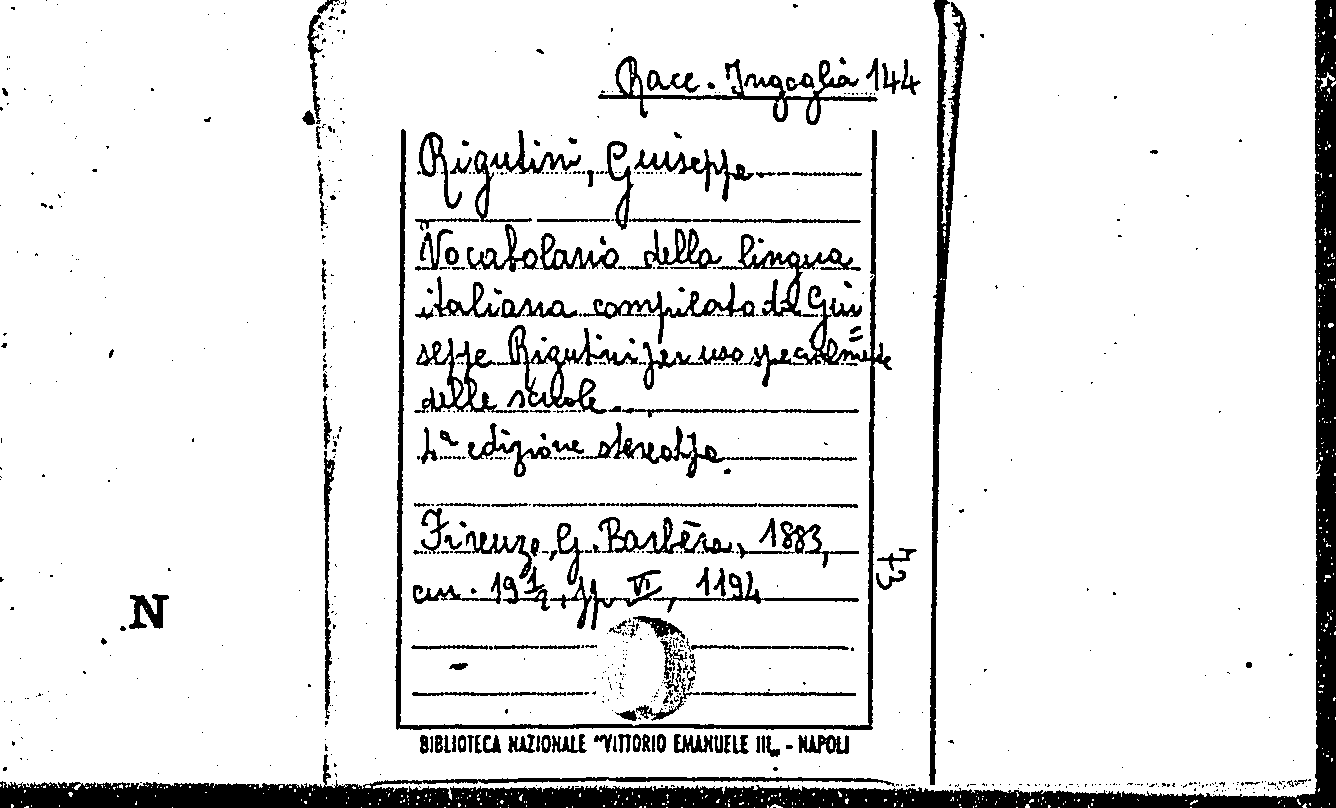 Racc. Ingoglia 144
Rigutini, Giuseppe.
Vocabolario della lingua
italiana compilato da Giu=
seppe Rigutini per uso specialmente
delle scuole...
4ª edizione stereotipa.
Firenze, G. Barbèra, 1883,
cm. 19½, pp. VI, 1194
73
N
BIBLIOTECA NAZIONALE "VITTORIO EMANUELE III„ - NAPOLI